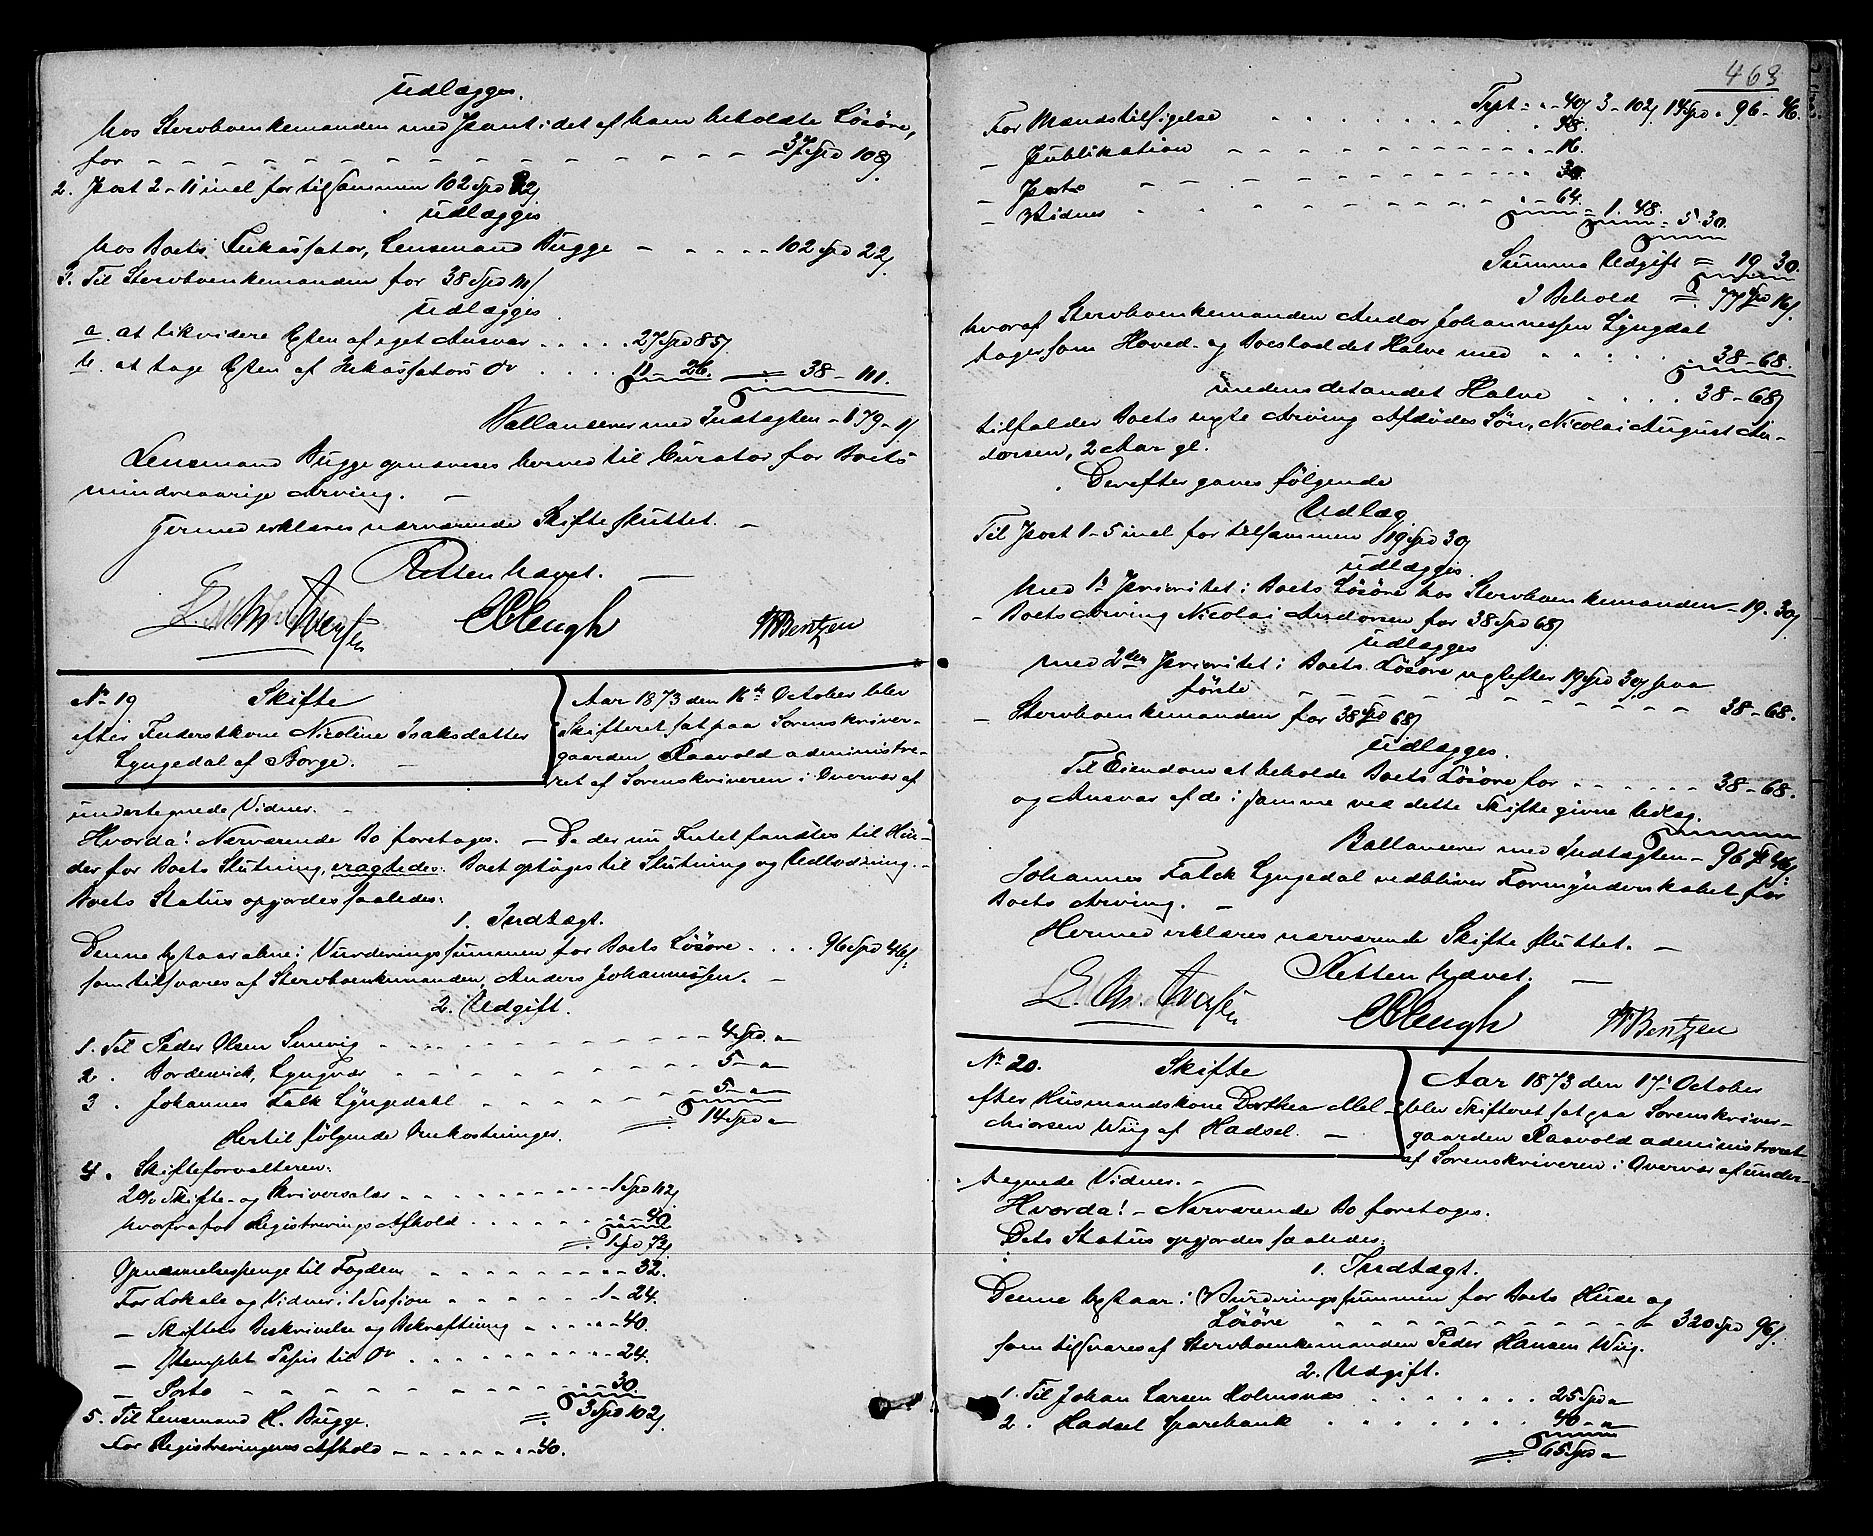 udlægges.
hos Stervboenkemanden med Pant i det af ham beholdte Løsøre,
for - - - 37 Spd 108 s
2. Post 2-11 incl for tilsammen 102 Spd 22 s
udlægges
hos Boets Inkassator, Lensmand Bugge - - - - 102 Spd 22 s
3. Til Stervboenkemanden for 38 Spd 111 s
udlægges
a. at likvidere Resten af eget Ansvar . . . . . 27 Spd 85 s
b. at tage Resten af Inkassators do . . . . 11 - 26. 38 - 111.
Ballancerer med Indtægten - 179 - 1 s
Lensmand Bugge opnævnes herved til Curator for Boets
mindreaarige Arving. -
Hermed erklæres nærværende Skifte sluttet. -
Retten hævet. -
CClengh WBentzen
No 19 Skifte
efter Inderstkone Nicoline Isaksdatter
Lyngedal af Borge. -
Aar 1873 den 16de October blev
Skifteret sat paa Sorenskriver-
gaarden Raavold administre-
ret af Sorenskriveren i Overvær af
undertegnede Vidner. -
Hvorda! Nærværende Bo foretoges. - Da der nu Intet fandtes til Hin-
der for Boets Slutning, eragtedes: Boet optages til Slutning og Udlodning. -
Boets Status opgjordes saaledes:
1. Indtægt.
Denne bestaar alene i Vurderingssummen for Boets Løsøre . . . . 96 Spd 46 s
som tilsvares af Stervboenkemanden, Anders Johannessen. -
2. Udgift.
1. Til Peder Olsen Sunvig - - - 4 Spd. "
2. Borderwich, Lyngvær . . . 5 - "
3. Johannes Falk Lyngedahl - - - 5 - "
= 14 Spd "
Hertil følgende Omkostninger.
4. Skifteforvalteren:
2% Skifte- og Skriversalær - - - 1 Spd 112 s
hvorfra for Registrerings Afhold . . . 40
= 1 Spd 72 s
Opnævnelsespenge til Fogden - - - 32.
For Lokale og Vidner i 1 Session - - - 1 - 24.
- Skiftets Beskrivelse og Bekræftning - - - 40.
- Stemplet Papir til do . . . 24.
- Porto - - - 30.
= 3 Spd 102 s
5. Til Lensmand H. Bugge.
For Registreringens Afhold - - - 40.
463
Trpt - " - 40 s 3 - 102 s 14 Spd " 96 - 46.
For Mændstilsigelse . . . 18.
- Publikation - - - 16.
- Porto - - - 30.
- Vidner . . . 64.
= 1. 48. = 5. 30.
Summa Udgift = 19 30.
I Behold = 77 Spd 16 s.
hvoraf Stervboenkemanden Andor Johannessen Lyngdal
tager som Hoved- og Boeslod det Halve med . . . 38 - 68.
medens det andet Halve . . . . 38 - 68 s
tilfalder Boets rette Arving Afdødes Søn, Nicolai August An-
dorsen, 2 Aar gl.
Derefter gaves følgende
Udlæg
Til Post 1-5 incl for tilsammen 19 Spd 30 s
udlægges
med 1ste Prioritet i Boets Løsøre hos Stervboenkemanden - 19. 30 s
- Boets Arving Nicolai Andorsen for 38 Spd 68 s
udlægges
med 2den Prioritet i Boets Løsøre næstefter 19 Spd 30 s paa
første - - - 38 - 68.
- Stervboenkemanden for 38 Spd 68 s
udlægges.
Til Eiendom at beholde Boets Løsøre for - - - 38 - 68.
og Ansvar af de i samme ved dette Skifte givne Udlæg.
Ballancerer med Indtægten - 96 Spd 46 s.
Johannes Falck Lyngedal vedbliver Formynderskabet for
Boets Arving. -
Hermed erklæres nærværende Skifte sluttet. -
Retten hævet. -
CClengh WBentzen
No 20. Skifte
efter Husmandskone Dorthea Mel-
chiorsen Wiig af Hadsel. -
Aar 1873 den 17de October
blev Skifteret sat paa Sorenskriver-
gaarden Raavold administreret
af Sorenskriveren i Overvær af under-
tegnede Vidner. -
Hvorda! - Nærværende Bo foretoges.
Dets Status opgjordes saaledes:
1. Indtægt.
Denne bestaar i Vurderingssummen for Boets Huse og
Løsøre - - - 320 Spd 96 s.
som tilsvares af Stervboenkemanden Peder Hansen Wiig.
2. Udgift.
1. Til Johan Larsen Holmsnæs . . . 25 Spd "
2. Hadsel Sparebank . . . 40 - "
= 65 Spd "